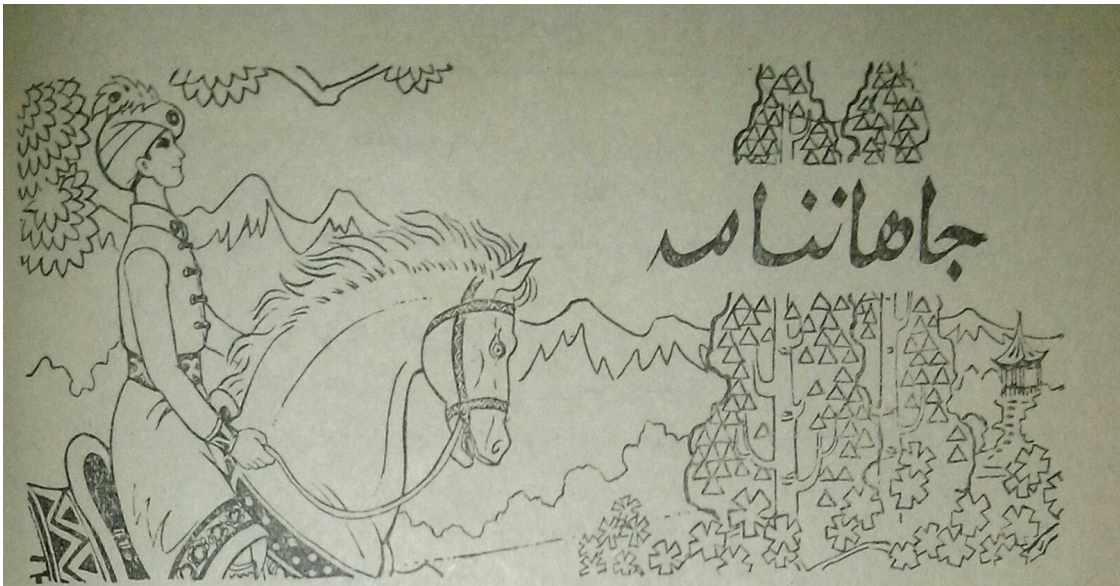 جاھاننامە